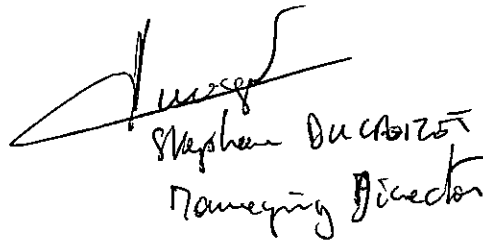 Stephane DUCROIZET
Managing Director